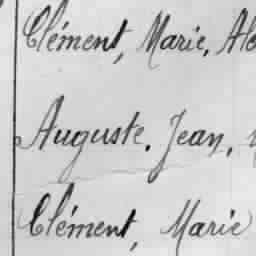 Clément, Marie, Ale
Auguste. Jean,
Clément, Marie